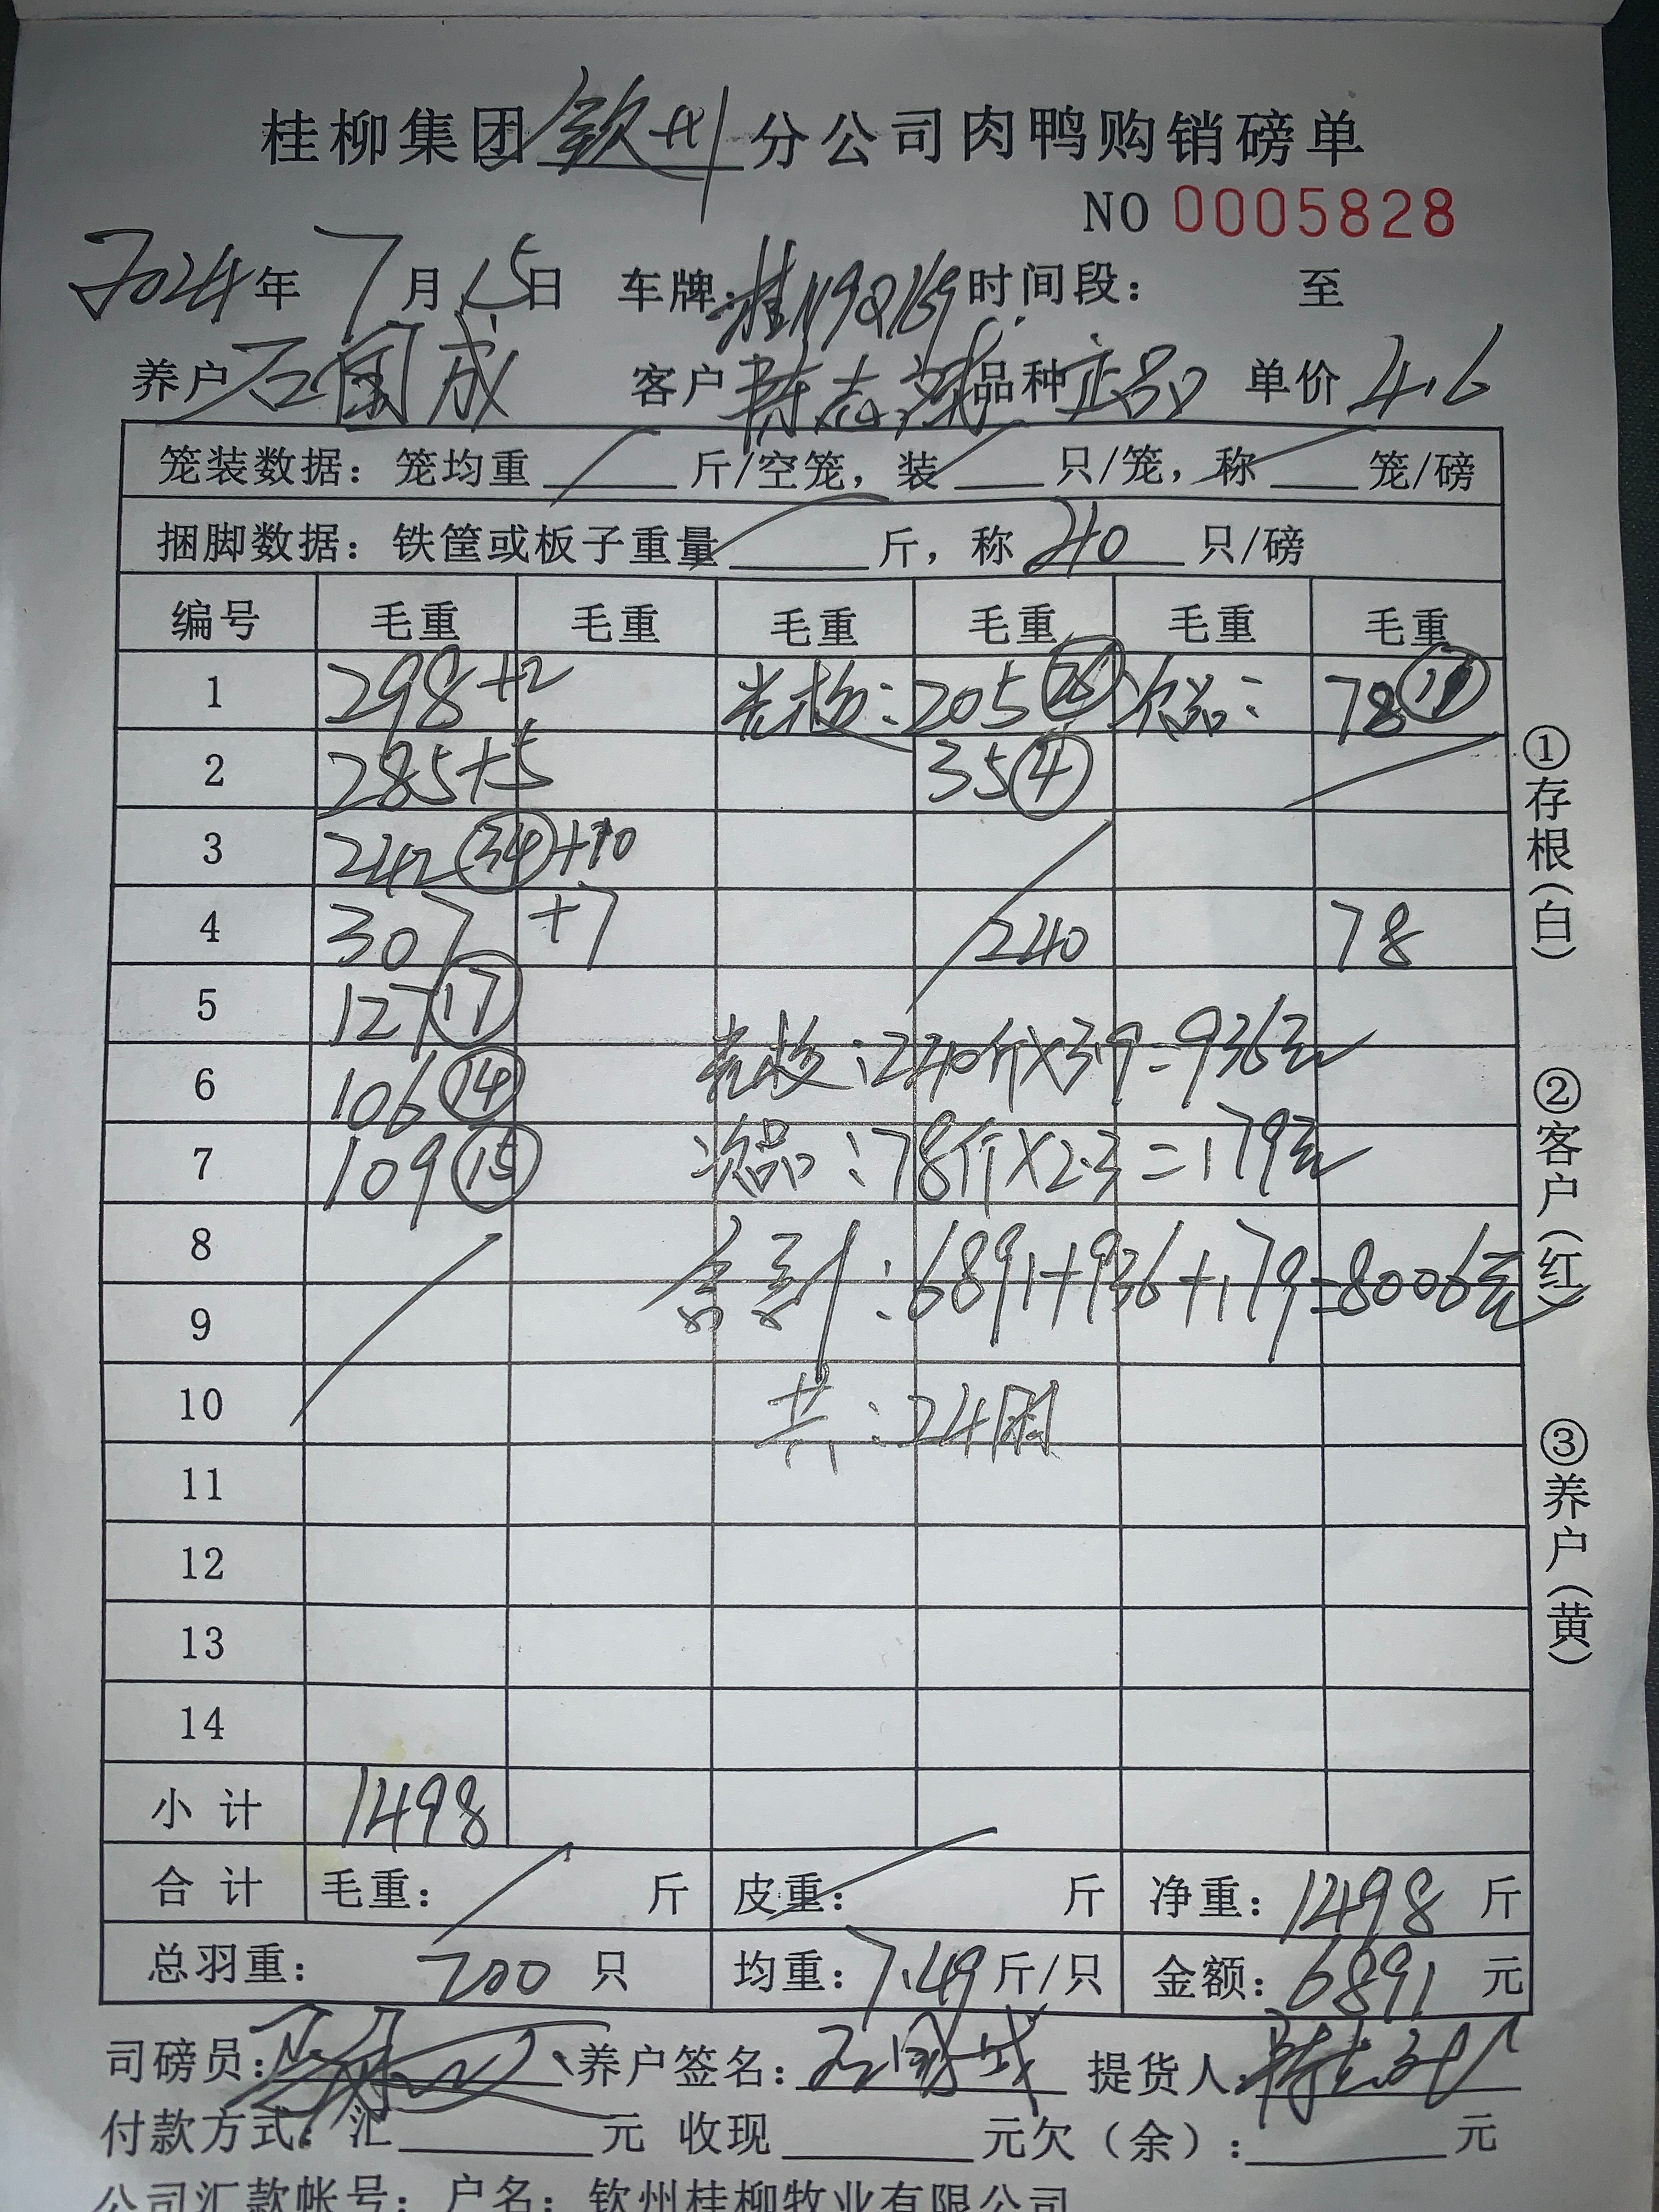 桂柳集团钦州分公司肉鸭购销磅单
NO 0005828
2024年7月15日 车牌:桂N9Q169时间段: 至
养户石国成 客户陈志球品种正品 单价4.6
笼装数据:笼均重______斤/空笼,装____只/笼,称____笼/磅
捆脚数据:铁筐或板子重量______斤,称40只/磅
编号 毛重 毛重 毛重 毛重 毛重 毛重
1 298+2 老杨:205 次品: 78
2 285+5 35④
3 242㉞+10
4 307 +7 240 78
5 127⑰
6 106⑭ 240斤×3.9=936元
7 109⑮ 次品:78斤×2.3=179元
8 :6891+936+179=8006元
9
10 共:24
11
12
13
14
小 计 1498
合 计 毛重: 斤 皮重: 斤 净重:1498斤
总羽重: 200 只 均重:7.49斤/只 金额:6891元
司磅员: 养户签名:石国成 提货人:
付款方式:汇______元 收现______元欠(余):______元
公司汇款帐号:户名:钦州桂柳牧业有限公司
①存根(白)
②客户(红)
③养户(黄)